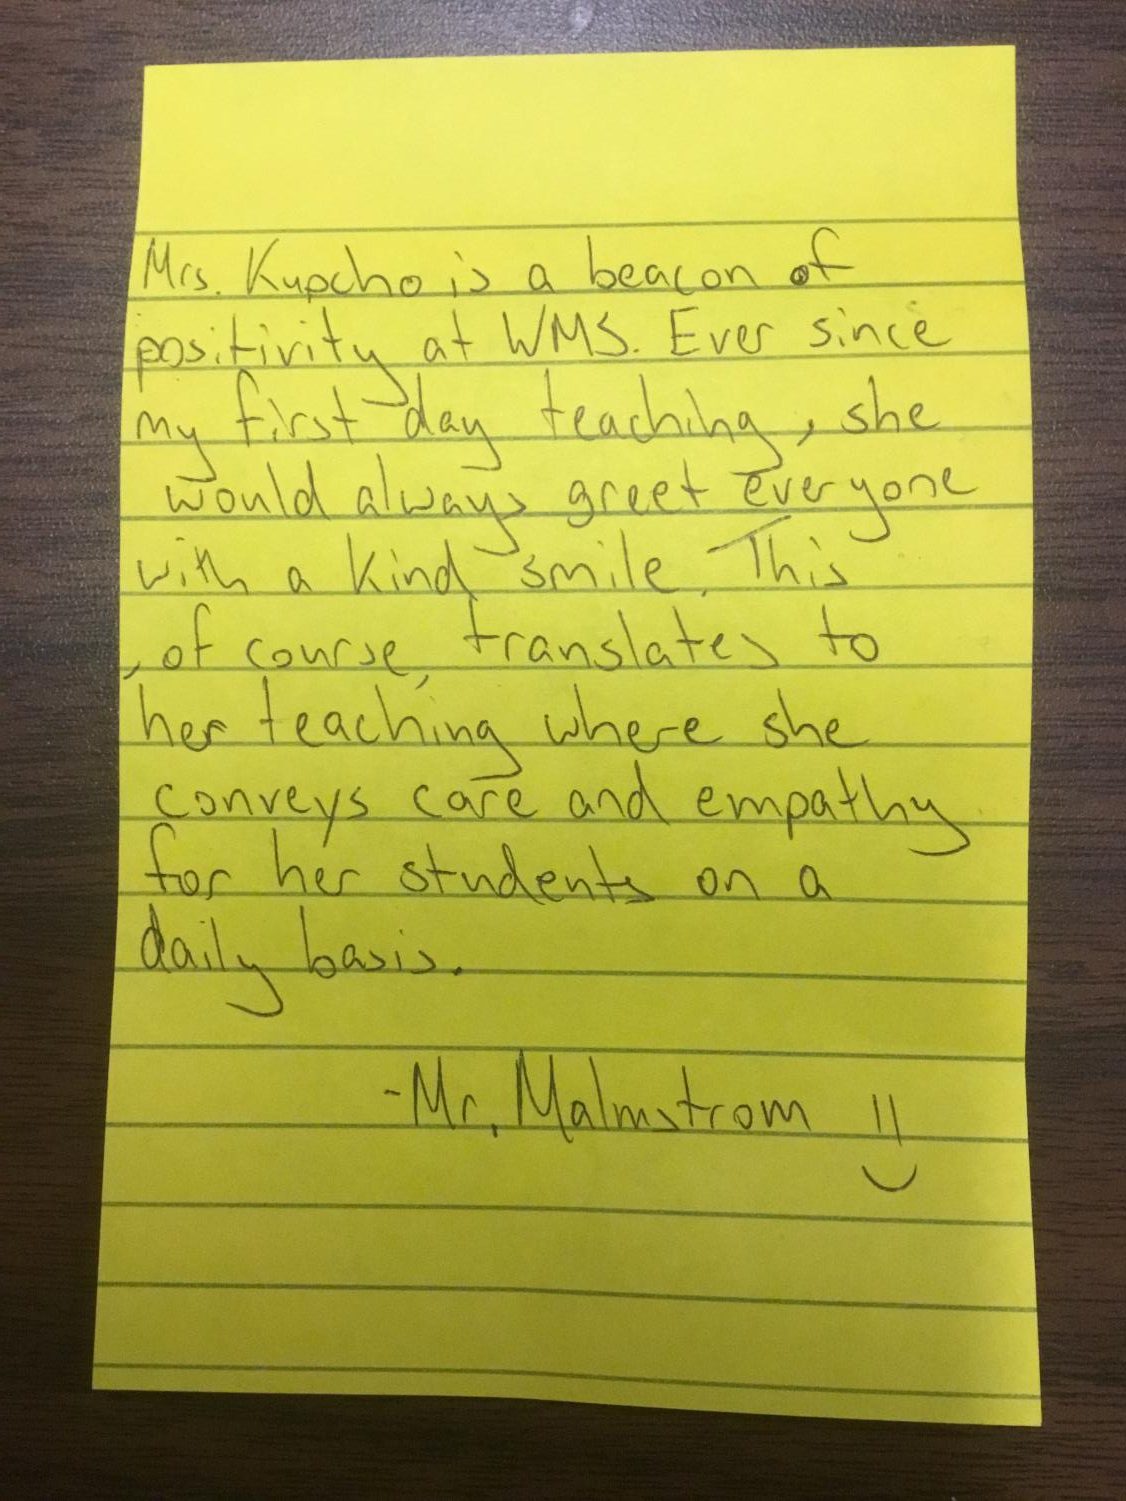 Mrs. Kupcho is a beacon of
positivity at WMS. Ever since
my first day teaching, she
would always greet everyone
with a kind smile. This
, of course, translates to
her teaching where she
conveys care and empathy
for her students on a
daily basis.
-Mr. Malmstrom